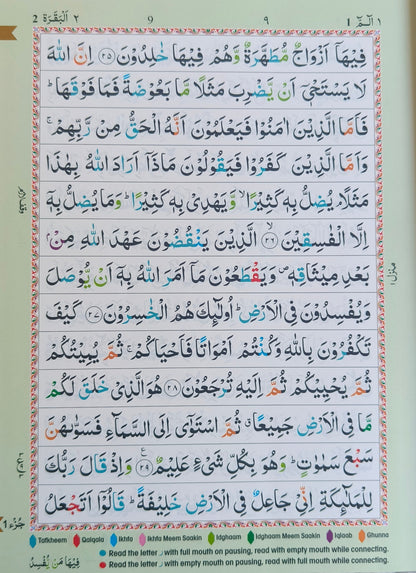 ٢ البقرة 2
9
٩
١ الٓمّٓ 1
فِيْهَاۤ اَزْوَاجٌ مُّطَهَّرَةٌ وَّهُمْ فِيْهَا خٰلِدُوْنَ ﴿۲۵﴾ اِنَّ اللّٰهَ
لَا يَسْتَحْيٖۤ اَنْ يَّضْرِبَ مَثَلًا مَّا بَعُوْضَةً فَمَا فَوْقَهَا ؕ
فَاَمَّا الَّذِيْنَ اٰمَنُوْا فَيَعْلَمُوْنَ اَنَّهُ الْحَقُّ مِنْ رَّبِّهِمْ ۚ
وَاَمَّا الَّذِيْنَ كَفَرُوْا فَيَقُوْلُوْنَ مَاذَاۤ اَرَادَ اللّٰهُ بِهٰذَا
مَثَلًا ۘ يُضِلُّ بِهٖ كَثِيْرًا ۙ وَّيَهْدِىْ بِهٖ كَثِيْرًا ؕ وَمَا يُضِلُّ بِهٖۤ
اِلَّا الْفٰسِقِيْنَ ﴿۲۶﴾ ۙ الَّذِيْنَ يَنْقُضُوْنَ عَهْدَ اللّٰهِ مِنْۢ
بَعْدِ مِيْثَاقِهٖ ۪ وَيَقْطَعُوْنَ مَاۤ اَمَرَ اللّٰهُ بِهٖۤ اَنْ يُّوْصَلَ
وَيُفْسِدُوْنَ فِى الْاَرْضِ ؕ اُولٰٓئِكَ هُمُ الْخٰسِرُوْنَ ﴿۲۷﴾ كَيْفَ
تَكْفُرُوْنَ بِاللّٰهِ وَكُنْتُمْ اَمْوَاتًا فَاَحْيَاكُمْ ۚ ثُمَّ يُمِيْتُكُمْ
ثُمَّ يُحْيِيْكُمْ ثُمَّ اِلَيْهِ تُرْجَعُوْنَ ﴿۲۸﴾ هُوَ الَّذِىْ خَلَقَ لَكُمْ
مَّا فِى الْاَرْضِ جَمِيْعًا ۗ ثُمَّ اسْتَوٰٓى اِلَى السَّمَآءِ فَسَوّٰىهُنَّ
سَبْعَ سَمٰوٰتٍ ؕ وَهُوَ بِكُلِّ شَىْءٍ عَلِيْمٌ ﴿۲۹﴾ وَاِذْ قَالَ رَبُّكَ
لِلْمَلٰٓئِكَةِ اِنِّىْ جَاعِلٌ فِى الْاَرْضِ خَلِيْفَةً ؕ قَالُوْۤا اَتَجْعَلُ
منزل ١
جُزْء 1
Tafkheem Qalqala Ikhfa Ikhfa Meem Saakin Idghaam Idghaam Meem Saakin Iqlaab Ghunna
Read the letter ر with full mouth on pausing, read with empty mouth while connecting.
Read the letter ر with empty mouth on pausing, read with full mouth while connecting.
فِيْهَا مَنْ يُّفْسِدُ